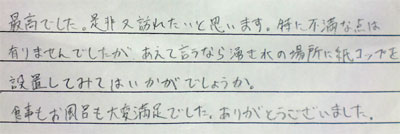 最高でした。是非又訪れたいと思います。特に不満な点は
有りませんでしたが、あえて言うなら湧き水の場所に紙コップを
設置してみてはいかがでしょうか。
食事もお風呂も大変満足でした。ありがとうございました。